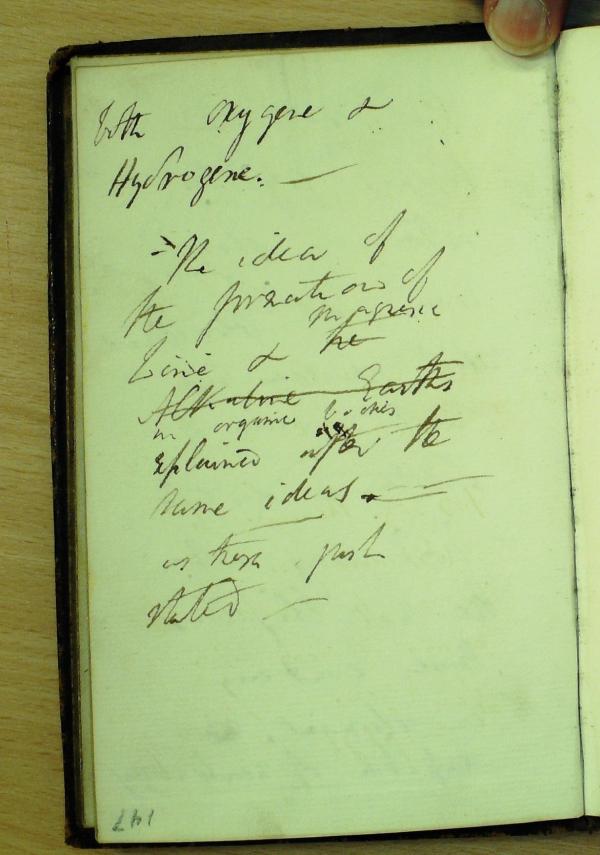 both oxygene &
Hydrogene. —
- The idea of
the formation of
magnesia
Lime & the
Alkaline Earths
in organic bodies
explained after the
same ideas. —
as those just
stated —
147